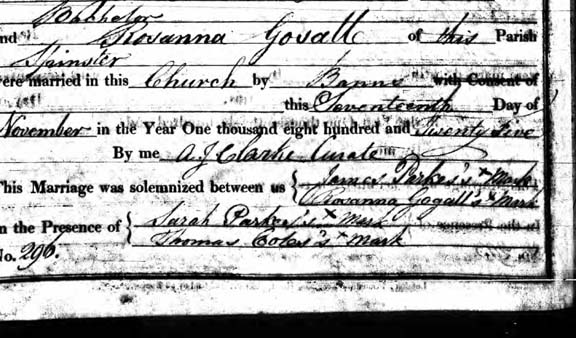 Batchelor
nd Rosanna Gosall of this Parish
Spinster
ere married in this Church by Banns with Consent of
this Seventeenth Day of
November in the Year One thousand eight hundred and Twenty five
By me A J Clarke Curate
This Marriage was solemnized between us { James Parkes's x Mark
Rosanna Gogall's x Mark
n the Presence of { Sarah Parkes's x Mark
Thomas Coley's x Mark
No. 296.